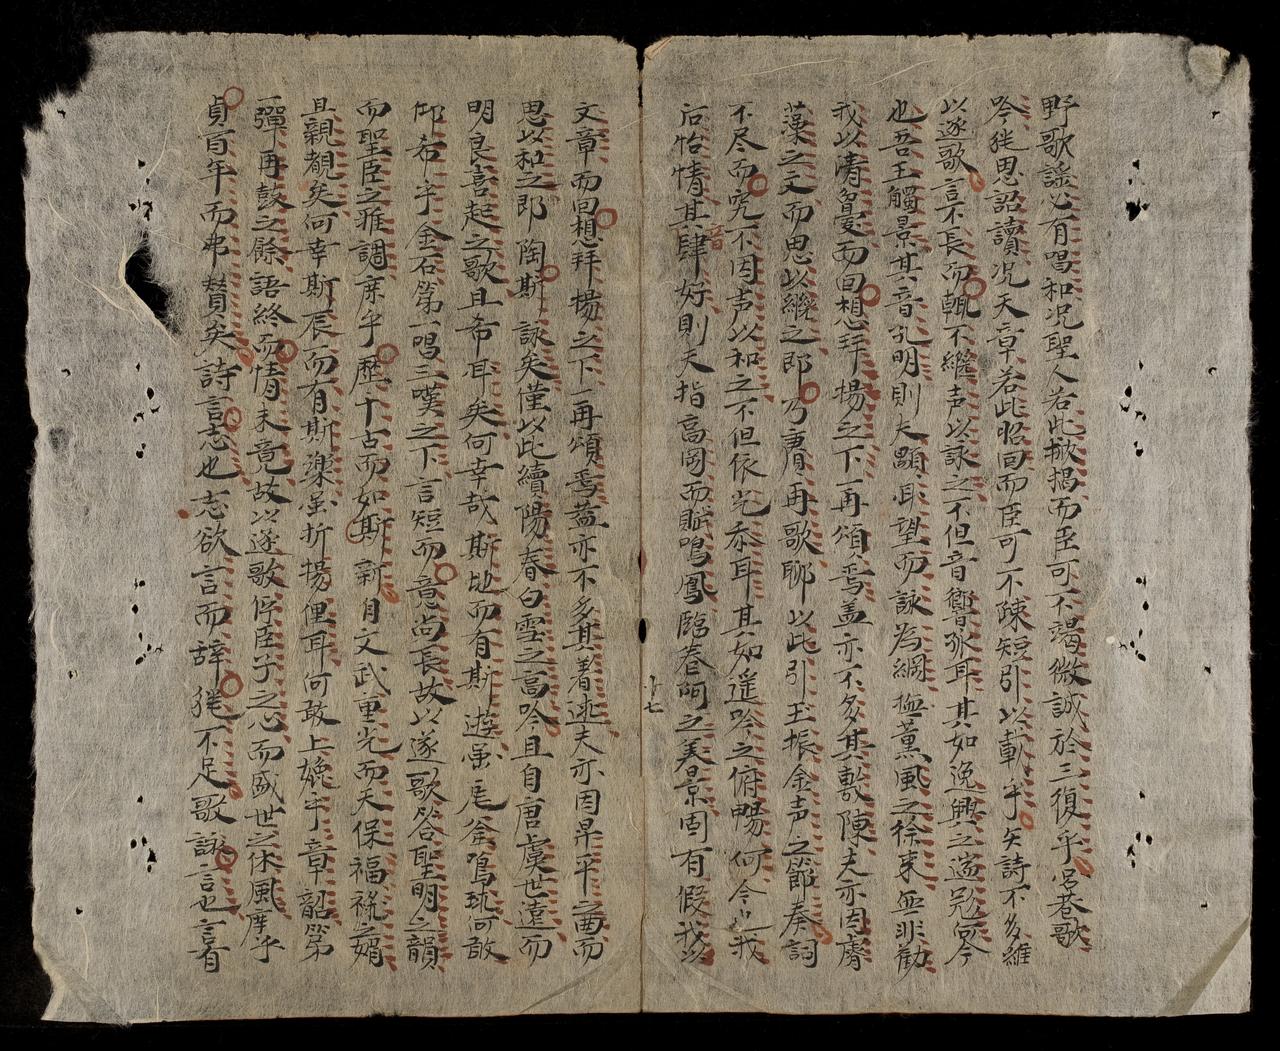 野歌謡必有唱和况聖人若此掀揭而臣可不竭微誠於三復乎宮巷歌
吟继思詔讀况天章若此昭回而臣可不陳短引以載乎矢詩不多維
以遂歌言不長而輒不繼声以詠之不但音嚮弥耳其如逸興之遄冠何今
也吾王觸景其音孔明則夫顯非望而詠為綱極薫風之徐来無非勸
我以清曼而回想拜揚之下一再頌焉盖亦不多其敷陳夫亦因賡
藻之文而思以継之即乃賡再歌聊以此引玉振金声之節奏詞
不尽而究不因声以和之不但依光忝耳其如遥吟之俯暢何今也我
后怡情其音肆好則夫指高岡而賦鳴鳳臨巻阿之美景固有假我以
十七
文章而回想拜揚之下一再頌焉盖亦不多其著述夫亦因昇平之曲而
思以和之即陶斯詠矣僅以此續陽春白雪之高吟且自唐虞世遠而
明良喜起之歌且希耳矣何幸哉斯地而有斯遊虽瓦釜鳴玩何敢
仰希乎金石第一唱三嘆之下言短而意尚長故以遂歌答聖明之韻
而聖臣之雅調庶乎歷十古而如斯新自文武重光而天保福禄之媚
且親覩矣何幸斯辰而有斯楽虽折揚俚耳何敢上媲乎韋韶第
一彈再鼓之餘語終而情未竟故以遂歌俘臣子之心而盛世之休風庶乎
貞百年而弗賛矣詩言志也志欲言而辞继不足歌詠言也言有